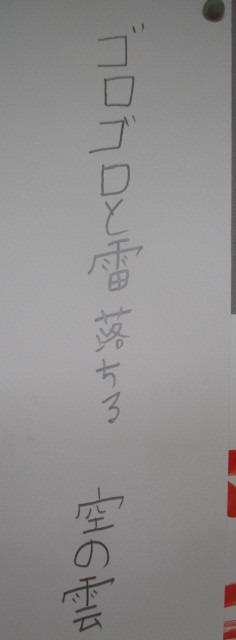 ゴロゴロと雷落ちる　空の雲